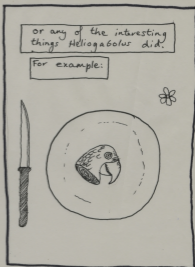 or any of the interesting
things Heliogabolus did.
For example: